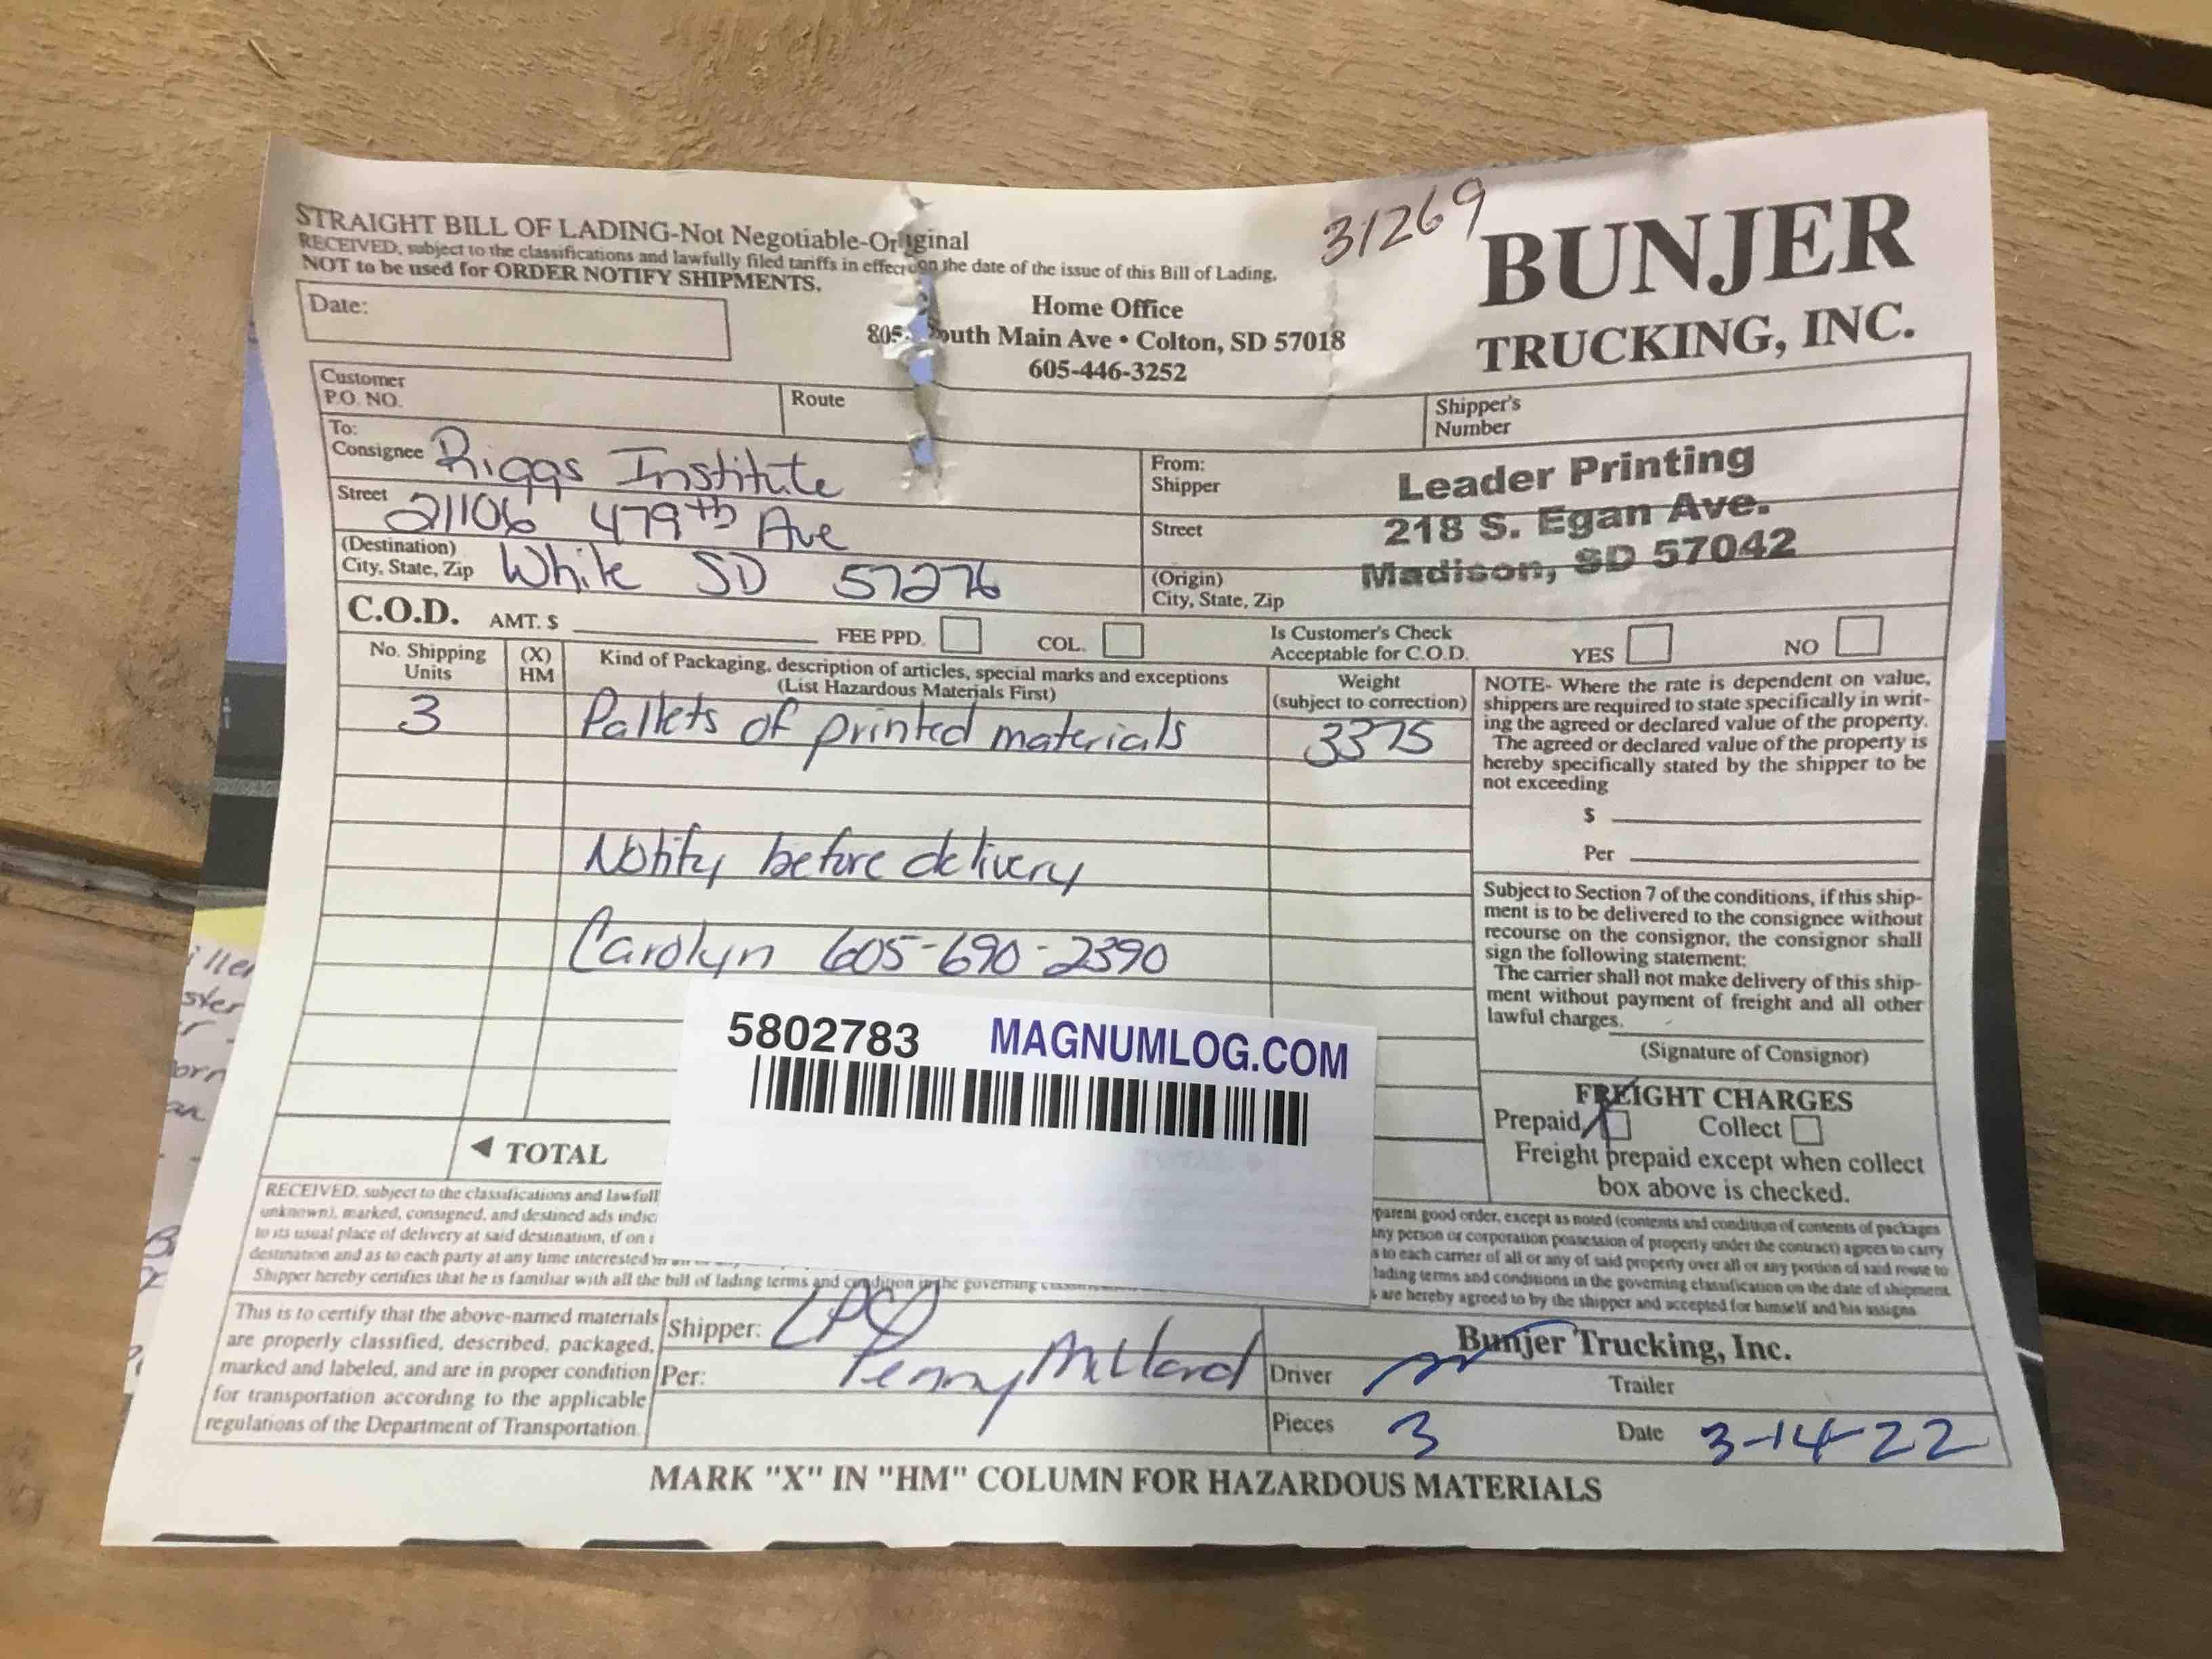 STRAIGHT BILL OF LADING-Not Negotiable-Original
RECEIVED, subject to the classifications and lawfully filed tariffs in effect on the date of the issue of this Bill of Lading.
NOT to be used for ORDER NOTIFY SHIPMENTS.
31269
BUNJER
TRUCKING, INC.
Date:
Home Office
805 South Main Ave • Colton, SD 57018
605-446-3252
Customer
P.O. NO.
Route
Shipper's
Number
To:
Consignee Riggs Institute
Street 21106 479th Ave
(Destination)
City, State, Zip White SD 57276
From:
Shipper
Street
(Origin)
City, State, Zip
Leader Printing
218 S. Egan Ave.
Madison, SD 57042
C.O.D. AMT. $ FEE PPD. COL.
Is Customer's Check
Acceptable for C.O.D. YES NO
No. Shipping
Units
(X)
HM
Kind of Packaging, description of articles, special marks and exceptions
(List Hazardous Materials First)
Weight
(subject to correction)
3 Pallets of printed materials 3375
Notify before delivery
Carolyn 605-690-2390
NOTE- Where the rate is dependent on value,
shippers are required to state specifically in writ-
ing the agreed or declared value of the property.
The agreed or declared value of the property is
hereby specifically stated by the shipper to be
not exceeding
$
Per
Subject to Section 7 of the conditions, if this ship-
ment is to be delivered to the consignee without
recourse on the consignor, the consignor shall
sign the following statement:
The carrier shall not make delivery of this ship-
ment without payment of freight and all other
lawful charges.
(Signature of Consignor)
FREIGHT CHARGES
Prepaid Collect
Freight prepaid except when collect
box above is checked.
5802783 MAGNUMLOG.COM
◄ TOTAL
RECEIVED, subject to the classifications and lawfull
unknown), marked, consigned, and destined ads indic
to its usual place of delivery at said destination, if on
destination and as to each party at any time interested in
Shipper hereby certifies that he is familiar with all the bill of lading terms and condition in the governing
parent good order, except as noted (contents and condition of contents of packages
any person or corporation possession of property under the contract) agrees to carry
s to each carrier of all or any of said property over all or any portion of said route to
lading terms and conditions in the governing classification on the date of shipment.
s are hereby agreed to by the shipper and accepted for himself and his assigns
This is to certify that the above-named materials
are properly classified, described, packaged,
marked and labeled, and are in proper condition
for transportation according to the applicable
regulations of the Department of Transportation.
Shipper: LPC
Per: Penny Millard
Bunjer Trucking, Inc.
Driver
Trailer
Pieces 3
Date 3-14-22
MARK "X" IN "HM" COLUMN FOR HAZARDOUS MATERIALS